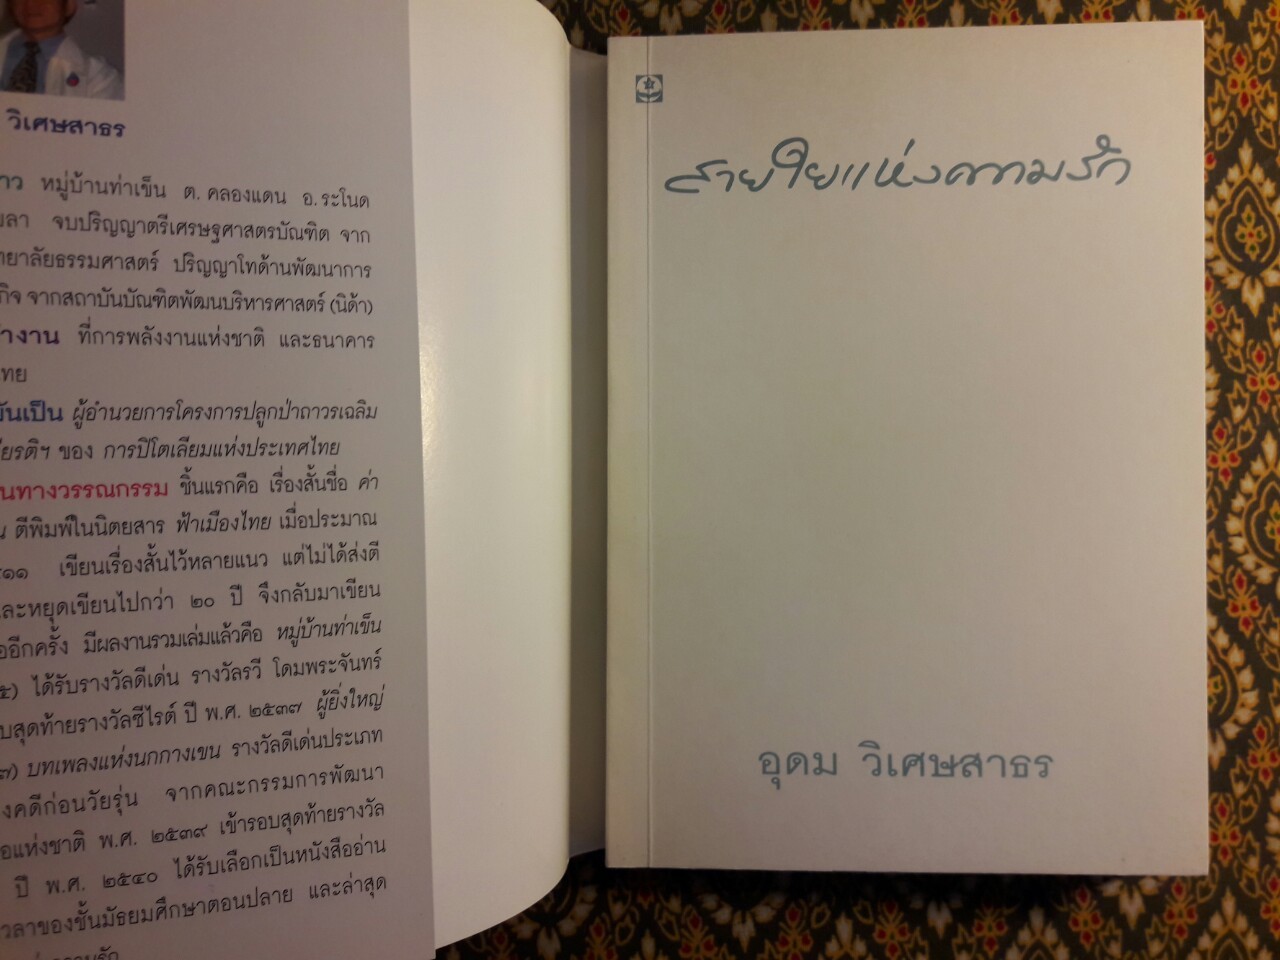 วิเศษสาธร
าว หมู่บ้านท่าเข็น ต. คลองแดน อ. ระโนด
ขลา จบปริญญาตรีเศรษฐศาสตรบัณฑิต จาก
ทยาลัยธรรมศาสตร์ ปริญญาโทด้านพัฒนาการ
กิจ จากสถาบันบัณฑิตพัฒนบริหารศาสตร์ (นิด้า)
ทำงาน ที่การพลังงานแห่งชาติ และธนาคาร
ไทย
บันเป็น ผู้อำนวยการโครงการปลูกป่าถาวรเฉลิม
ียรติฯ ของ การปิโตเลียมแห่งประเทศไทย
นทางวรรณกรรม ชิ้นแรกคือ เรื่องสั้นชื่อ ค่า
น ตีพิมพ์ในนิตยสาร ฟ้าเมืองไทย เมื่อประมาณ
๕๑๑ เขียนเรื่องสั้นไว้หลายแนว แต่ไม่ได้ส่งตี
และหยุดเขียนไปกว่า ๒๐ ปี จึงกลับมาเขียน
ออีกครั้ง มีผลงานรวมเล่มแล้วคือ หมู่บ้านท่าเข็น
๕) ได้รับรางวัลดีเด่น รางวัลรวี โดมพระจันทร์
บสุดท้ายรางวัลซีไรต์ ปี พ.ศ. ๒๕๓๗ ผู้ยิ่งใหญ่
๗) บทเพลงแห่งนกกางเขน รางวัลดีเด่นประเภท
งคดีก่อนวัยรุ่น จากคณะกรรมการพัฒนา
อแห่งชาติ พ.ศ. ๒๕๓๙ เข้ารอบสุดท้ายรางวัล
ปี พ.ศ. ๒๕๔๐ ได้รับเลือกเป็นหนังสืออ่าน
วลาของชั้นมัธยมศึกษาตอนปลาย และล่าสุด
สายใยแห่งความรัก
อุดม วิเศษสาธร